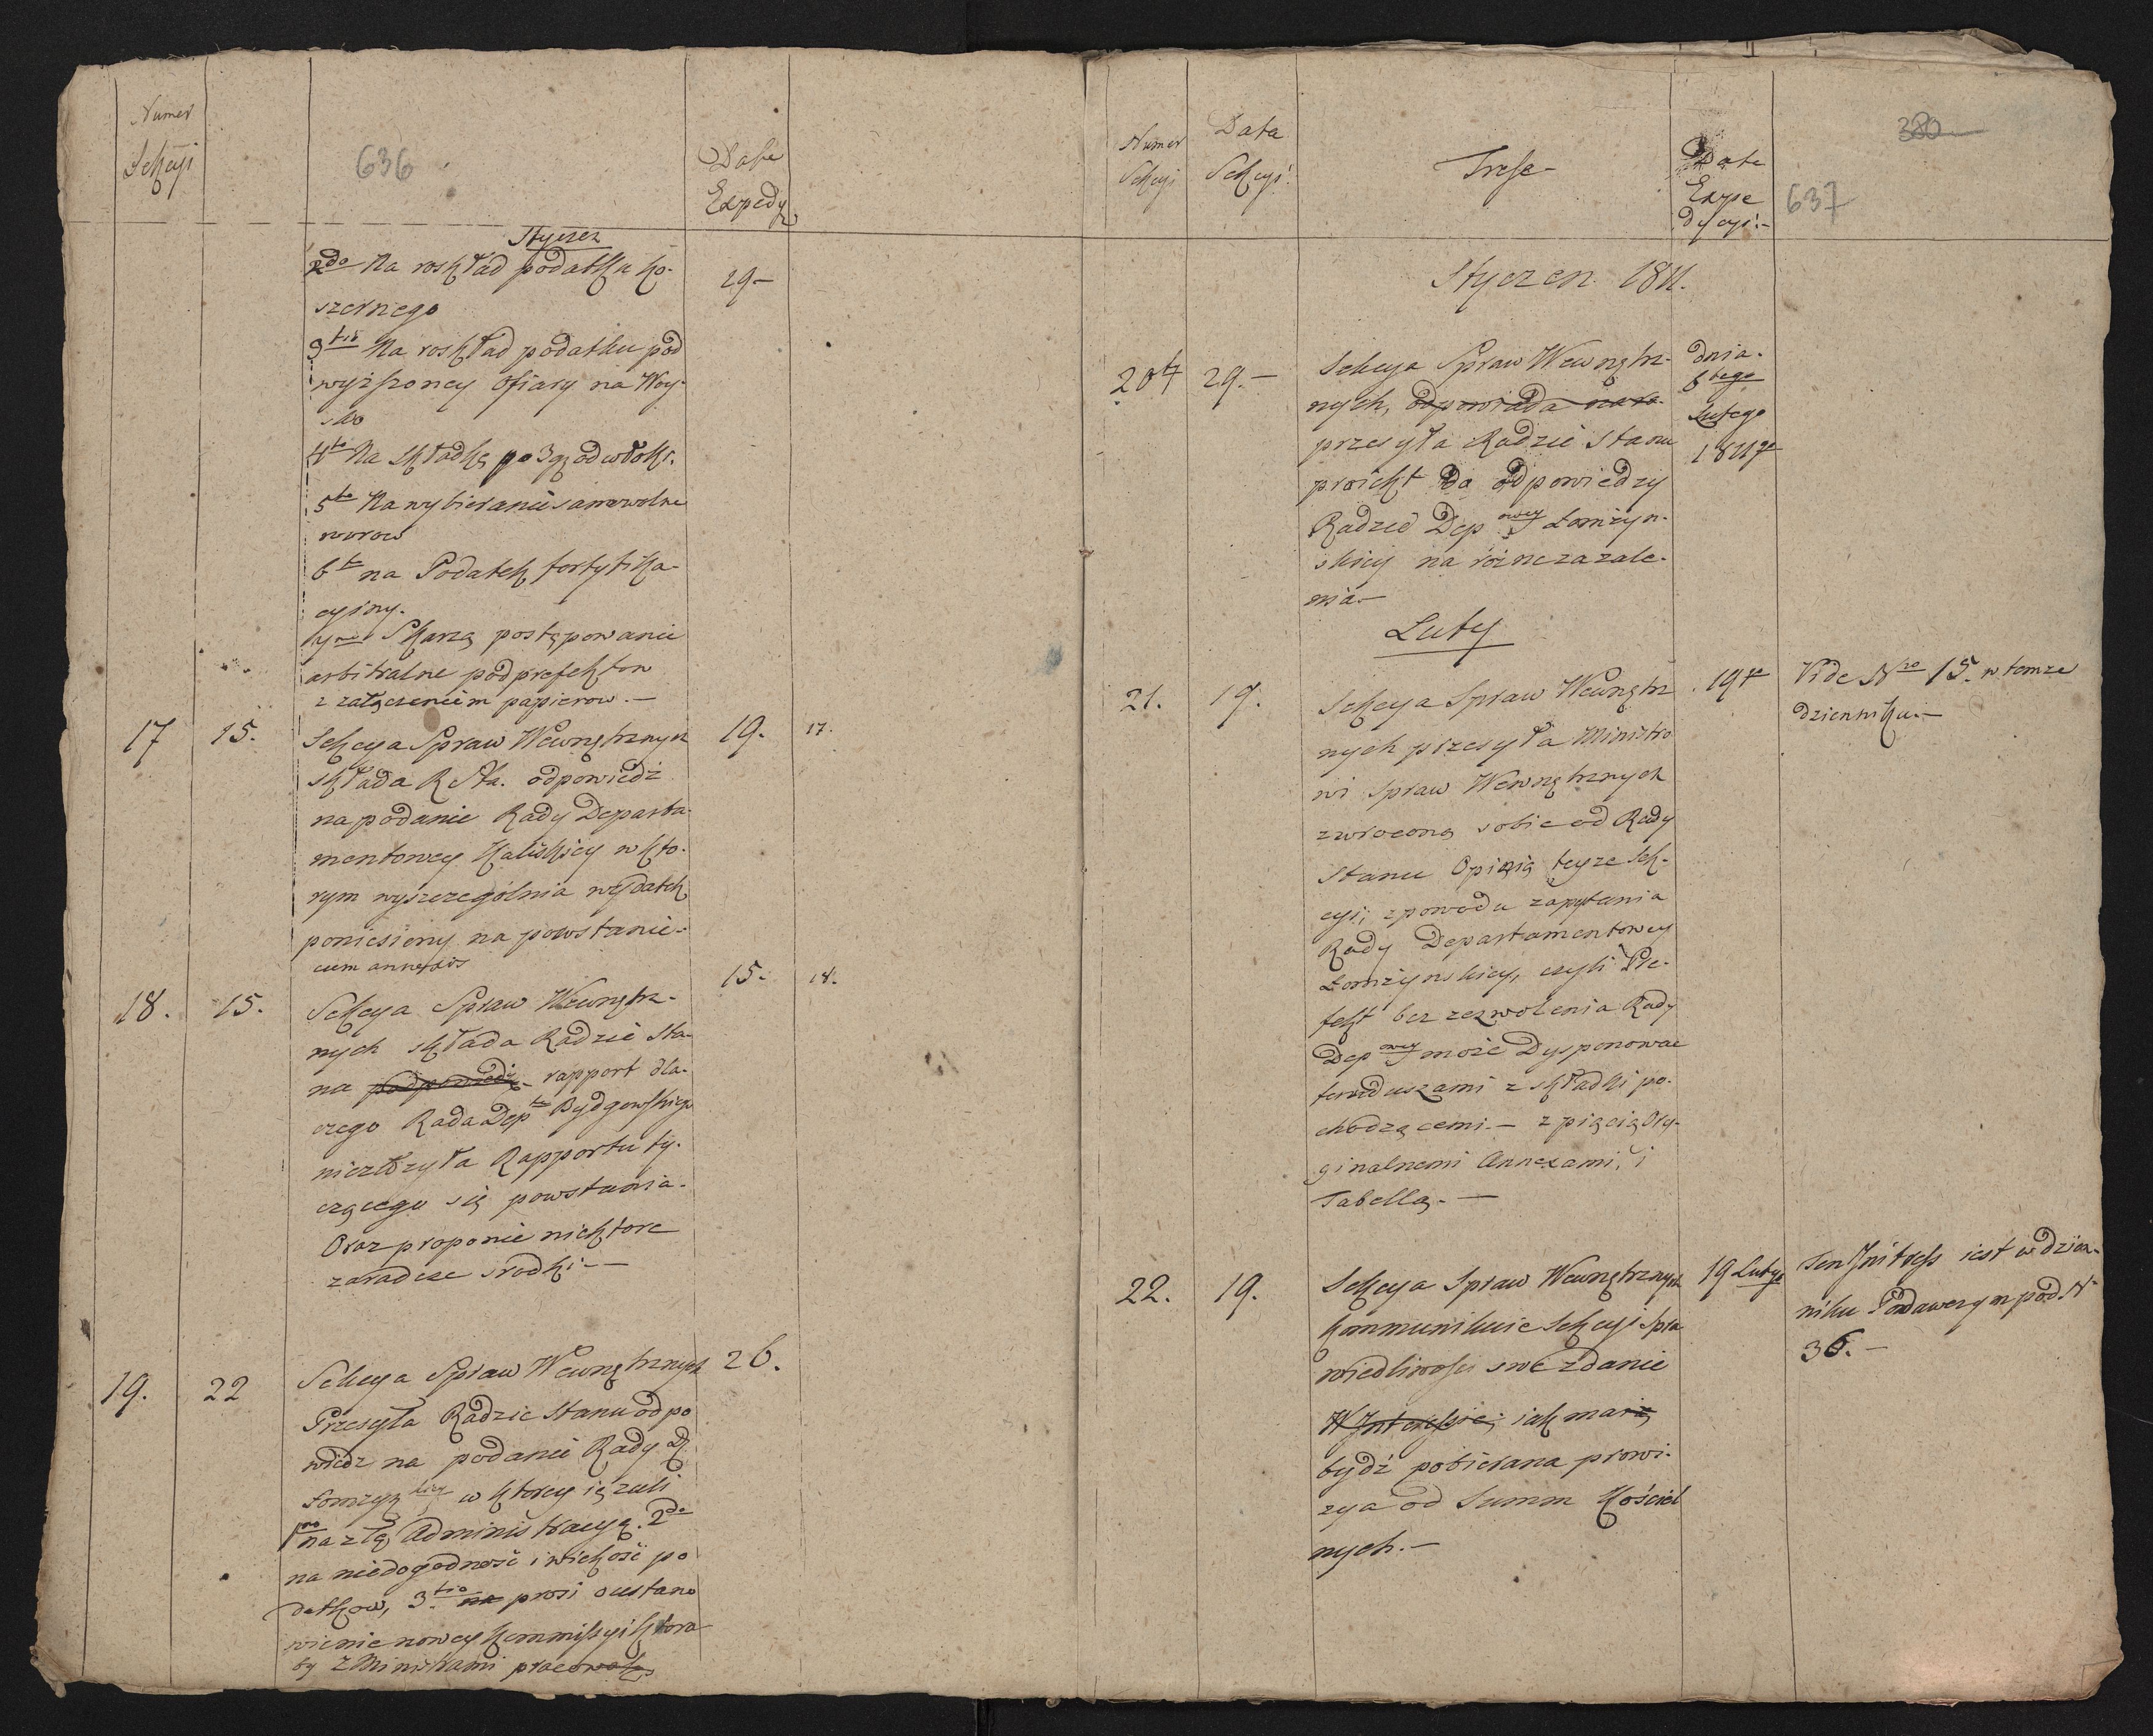 Numer
Sekcyi
636
Data
Expedy
Styczeń
2do Na rozkład podatku ko-
szernego
29-
3tio Na rozkład podatku pod
wyższoney Ofiary na Woy-
sko
4to Na składkę po 3 gr od włoki.
5to Na wybieranie samowolne
worow
6te na Podatek fortyfika-
cyiny.
Skarżą postępowanie
arbitralne podprefektow
z załączeniem papierow.-
17 15. Sekcya Spraw Wewnętrznych 19. 17.
składa R Sta. odpowiedź
na podanie Rady Departa-
mentowey Kaliskiey w kto-
rym wyszczególnia wydatek
poniesiony na powstanie-
cum annexis
18. 15. Sekcya Spraw Wewnętrz- 15. 18.
nych składa Radzie Sta-
nu rapport dla-
czego Rada Dept Bydgowskiego
niezłożyła Rapportu ty-
czącego się powstania.
Oraz proponie niektore
zaradcze srodki.-
19. 22 Sekcya Spraw Wewnętrznych 26.
Przesyła Radzie Stanu odpo
wiedz na podanie Rady D.
Łomzyńskiey w ktorey iężeli
1mo na złą Administracyą. 2do
na niedogodność i wielość po
datkow, 3tio na prosi o ustano
wienie nowey kommissyi ktora
by z Ministrami pracowała
Numer
Sekcyi
Data
Sekcyi.
Treść-
Data
Expe
dycyi.-
380
637
Styczen 1811.
20 29.- Sekcya Spraw Wewnętrz- dnia
nych, odpowiada na ra- 6tego
przesyła Radzie Stanu Lutego
proiekt do odpowiedzy 1811
Radzie Depowey Łomżyń-
skiey na różne zażale-
nia.-
Luty
21. 19. Sekcya Spraw Wewnętrz 19 Vide Nro 15. w temze
nych przesyła Ministro dzienniku.-
wi Spraw Wewnętrznych
zwroconą sobie od Rady
Stanu Opinią teyze Sek-
cyi, z powodu zapytania
Rady Departamentowey
Łomżyńskiey, czyli Pre-
fekt bez zezwolenia Rady
Depowey może Dysponować
funduszami z składki po-
chodzącemi.- z pięcią Ory-
ginalnemi Annexami, i
Tabellą.-
22. 19. Sekcya Spraw Wewnętrznych 19 Lutego Ten Jnteress iest w dzien-
kommunikuie Sekcyi Spra niku Podawczym pod N
wiedliwości swe zdanie 36.-
W Jnteressie; iak ma
bydź pobierana prowi-
zya od Summ Kościel
nych.-